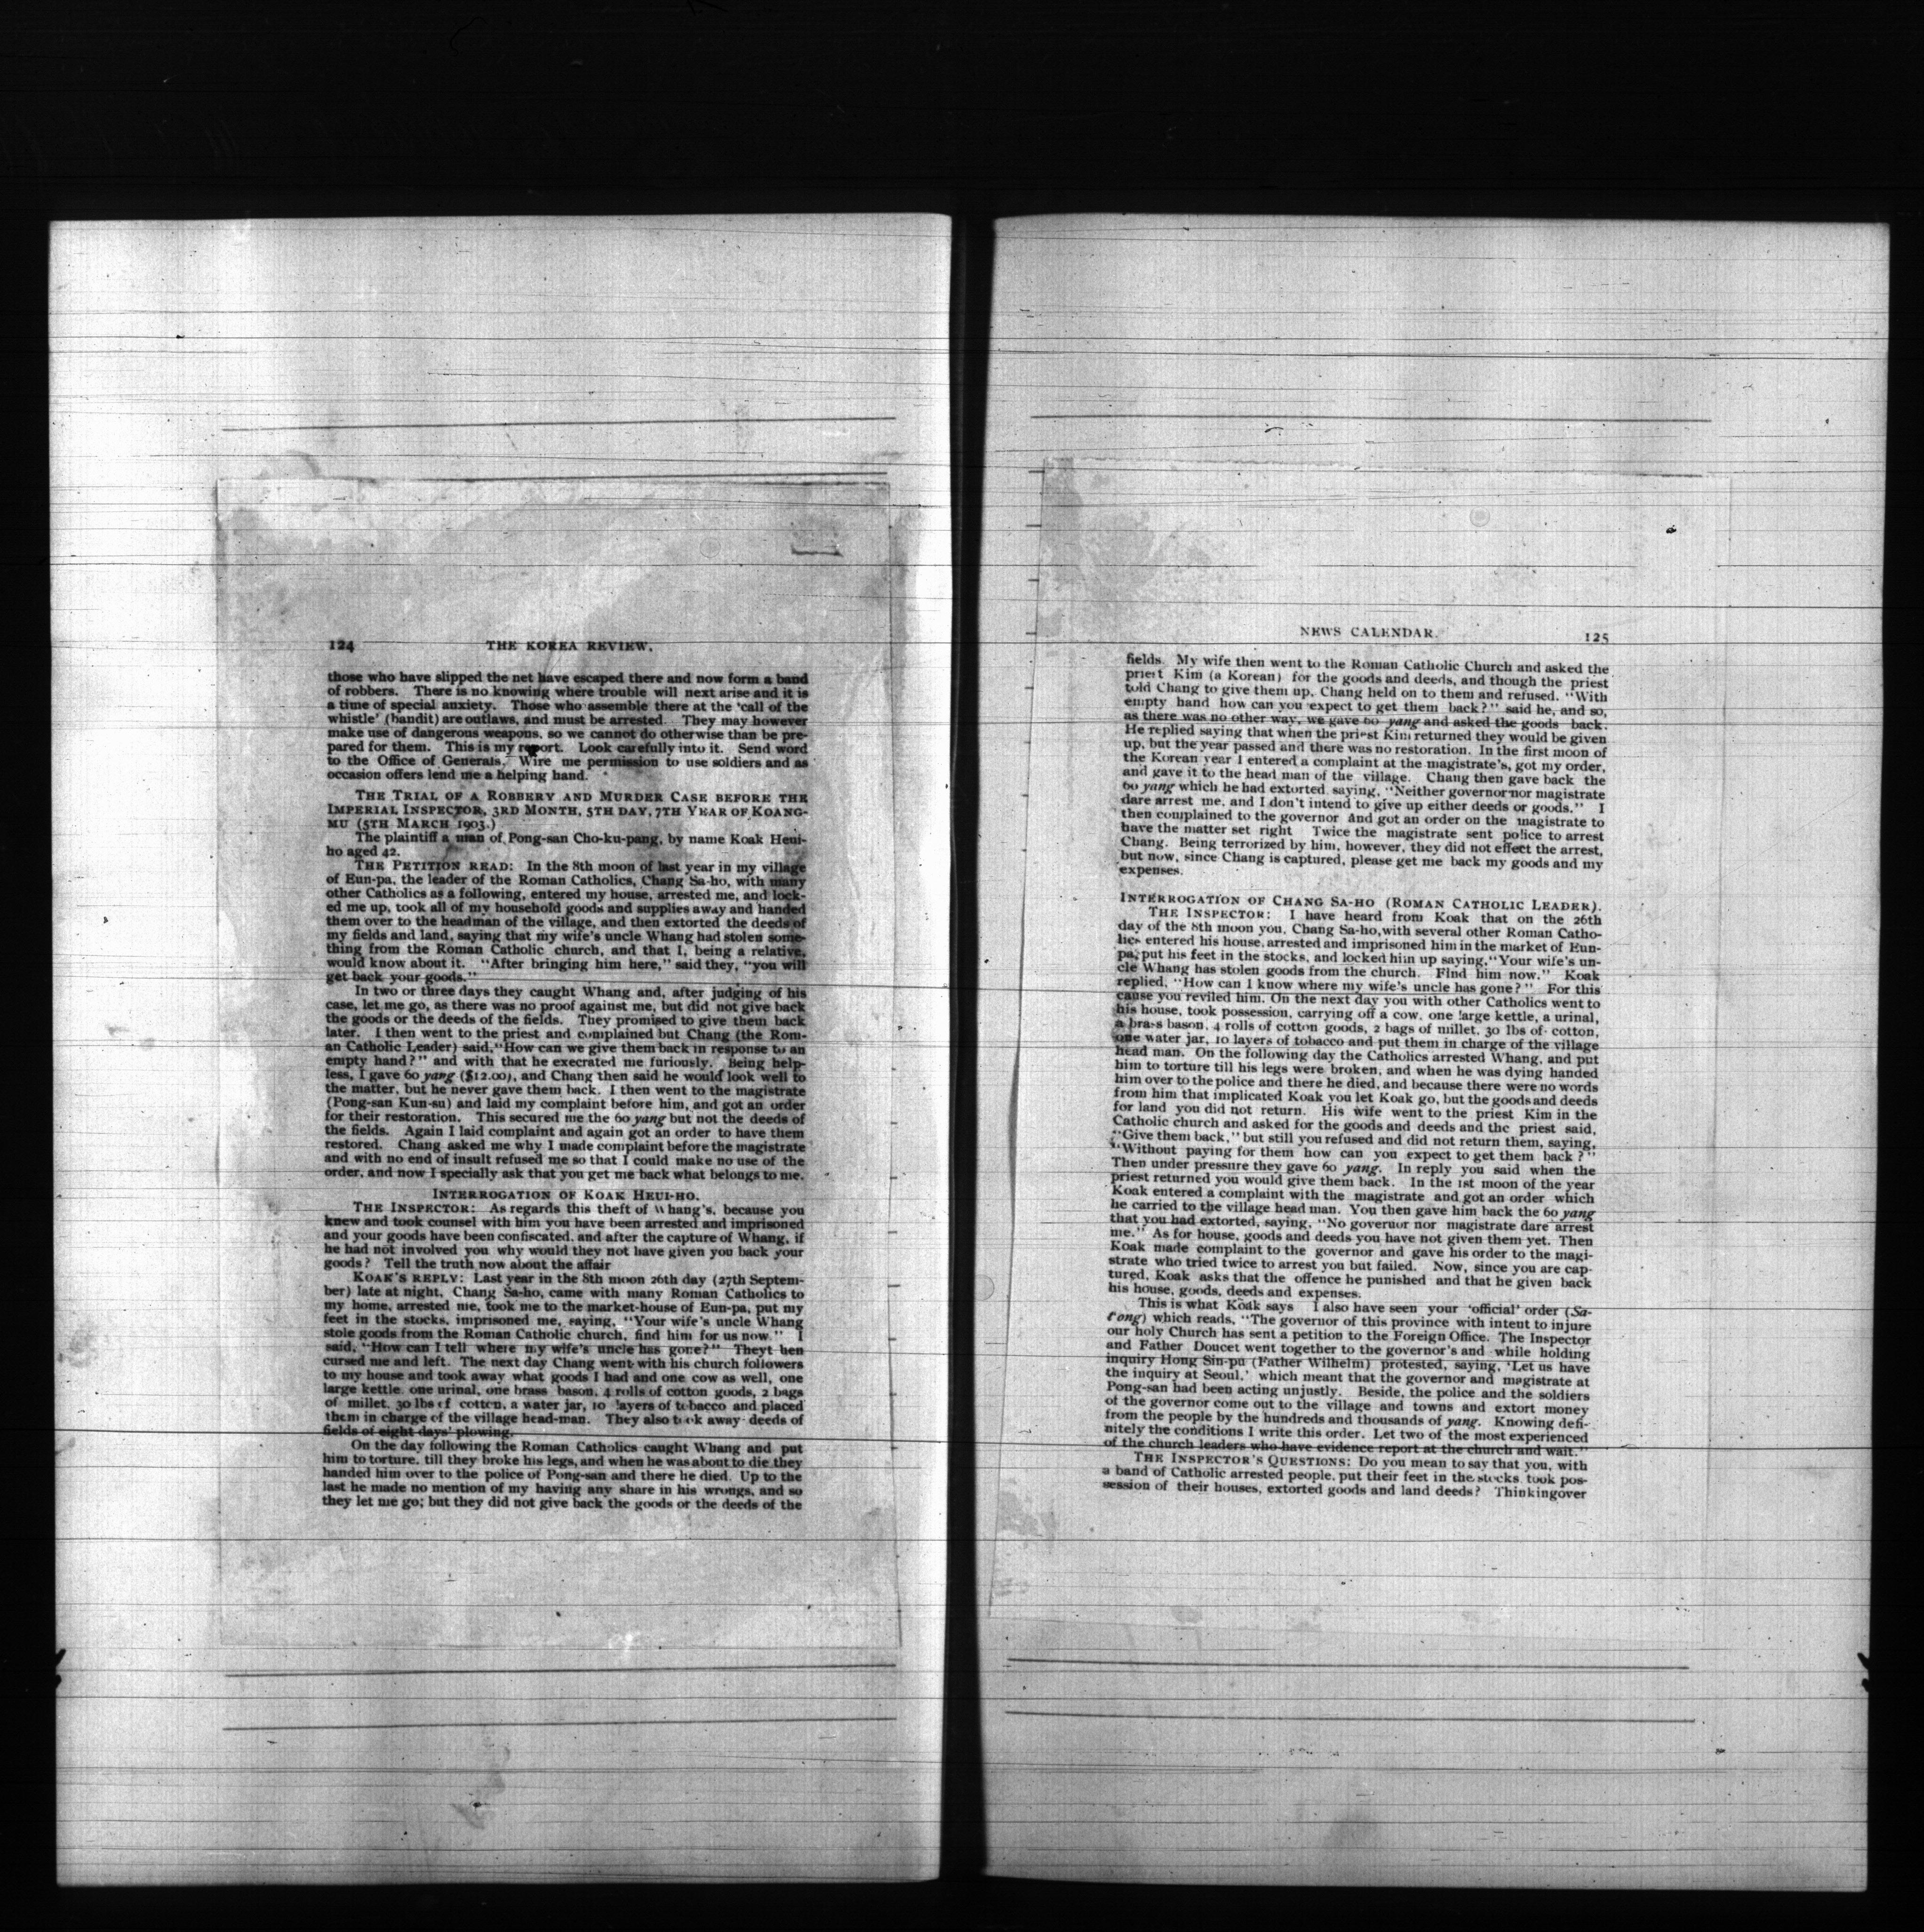 124 THE KOREA REVIEW.
those who have slipped the net have escaped there and now form a band
of robbers. There is no knowing where trouble will next arise and it is
a time of special anxiety. Those who assemble there at the 'call of the
whistle' (bandit) are outlaws, and must be arrested. They may however
make use of dangerous weapons, so we cannot do otherwise than be pre-
pared for them. This is my report. Look carefully into it. Send word
to the Office of Generals. Wire me permission to use soldiers and as
occasion offers lend me a helping hand.
THE TRIAL OF A ROBBERY AND MURDER CASE BEFORE THE
IMPERIAL INSPECTOR, 3RD MONTH, 5TH DAY, 7TH YEAR OF KOANG-
MU (5TH MARCH 1903.)
The plaintiff a man of Pong-san Cho-ku-pang, by name Koak Heui-
ho aged 42.
THE PETITION READ: In the 8th moon of last year in my village
of Eun-pa, the leader of the Roman Catholics, Chang Sa-ho, with many
other Catholics as a following, entered my house, arrested me, and lock-
ed me up, took all of my household goods and supplies away and handed
them over to the headman of the village, and then extorted the deeds of
my fields and land, saying that my wife's uncle Whang had stolen some-
thing from the Roman Catholic church, and that I, being a relative,
would know about it. "After bringing him here," said they, "you will
get back your goods."
In two or three days they caught Whang and, after judging of his
case, let me go, as there was no proof against me, but did not give back
the goods or the deeds of the fields. They promised to give them back
later. I then went to the priest and complained but Chang (the Rom-
an Catholic Leader) said, "How can we give them back in response to an
empty hand?" and with that he execrated me furiously. Being help-
less, I gave 60 yang ($12.00), and Chang then said he would look well to
the matter, but he never gave them back. I then went to the magistrate
(Pong-san Kun-su) and laid my complaint before him, and got an order
for their restoration. This secured me the 60 yang but not the deeds of
the fields. Again I laid complaint and again got an order to have them
restored. Chang asked me why I made complaint before the magistrate
and with no end of insult refused me so that I could make no use of the
order, and now I specially ask that you get me back what belongs to me.
INTERROGATION OF KOAK HEUI-HO.
THE INSPECTOR: As regards this theft of Whang's, because you
knew and took counsel with him you have been arrested and imprisoned
and your goods have been confiscated, and after the capture of Whang, if
he had not involved you why would they not have given you back your
goods? Tell the truth now about the affair
KOAK'S REPLY: Last year in the 8th moon 26th day (27th Septem-
ber) late at night, Chang Sa-ho, came with many Roman Catholics to
my home, arrested me, took me to the market-house of Eun-pa, put my
feet in the stocks, imprisoned me, saying, "Your wife's uncle Whang
stole goods from the Roman Catholic church, find him for us now." I
said, "How can I tell where my wife's uncle has gone?" Theyt hen
cursed me and left. The next day Chang went with his church followers
to my house and took away what goods I had and one cow as well, one
large kettle, one urinal, one brass bason, 4 rolls of cotton goods, 2 bags
of millet, 30 lbs of cotton, a water jar, 10 layers of tobacco and placed
them in charge of the village head-man. They also took away deeds of
fields of eight days' plowing.
On the day following the Roman Catholics caught Whang and put
him to torture, till they broke his legs, and when he was about to die they
handed him over to the police of Pong-san and there he died. Up to the
last he made no mention of my having any share in his wrongs, and so
they let me go; but they did not give back the goods or the deeds of the
NEWS CALENDAR. 125
fields. My wife then went to the Roman Catholic Church and asked the
priest Kim (a Korean) for the goods and deeds, and though the priest
told Chang to give them up, Chang held on to them and refused. "With
empty hand how can you expect to get them back?" said he, and so,
as there was no other way, we gave 60 yang and asked the goods back.
He replied saying that when the priest Kim returned they would be given
up, but the year passed and there was no restoration. In the first moon of
the Korean year I entered a complaint at the magistrate's, got my order,
and gave it to the head man of the village. Chang then gave back the
60 yang which he had extorted saying, "Neither governor nor magistrate
dare arrest me, and I don't intend to give up either deeds or goods." I
then complained to the governor And got an order on the magistrate to
have the matter set right Twice the magistrate sent police to arrest
Chang. Being terrorized by him, however, they did not effect the arrest,
but now, since Chang is captured, please get me back my goods and my
expenses.
INTERROGATION OF CHANG SA-HO (ROMAN CATHOLIC LEADER).
THE INSPECTOR: I have heard from Koak that on the 26th
day of the 8th moon you, Chang Sa-ho, with several other Roman Catho-
lics entered his house, arrested and imprisoned him in the market of Eun-
pa, put his feet in the stocks, and locked him up saying, "Your wife's un-
cle Whang has stolen goods from the church. Find him now." Koak
replied, "How can I know where my wife's uncle has gone?" For this
cause you reviled him. On the next day you with other Catholics went to
his house, took possession, carrying off a cow, one large kettle, a urinal,
a brass bason, 4 rolls of cotton goods, 2 bags of millet, 30 lbs of cotton,
one water jar, 10 layers of tobacco and put them in charge of the village
head man. On the following day the Catholics arrested Whang, and put
him to torture till his legs were broken, and when he was dying handed
him over to the police and there he died, and because there were no words
from him that implicated Koak you let Koak go, but the goods and deeds
for land you did not return. His wife went to the priest Kim in the
Catholic church and asked for the goods and deeds and the priest said,
"Give them back," but still you refused and did not return them, saying,
"Without paying for them how can you expect to get them back?"
Then under pressure they gave 60 yang. In reply you said when the
priest returned you would give them back. In the 1st moon of the year
Koak entered a complaint with the magistrate and got an order which
he carried to the village head man. You then gave him back the 60 yang
that you had extorted, saying, "No governor nor magistrate dare arrest
me." As for house, goods and deeds you have not given them yet. Then
Koak made complaint to the governor and gave his order to the magi-
strate who tried twice to arrest you but failed. Now, since you are cap-
tured, Koak asks that the offence he punished and that he given back
his house, goods, deeds and expenses.
This is what Koak says I also have seen your 'official' order (Sa-
t'ong) which reads, "The governor of this province with intent to injure
our holy Church has sent a petition to the Foreign Office. The Inspector
and Father Doucet went together to the governor's and while holding
inquiry Hong Sin-pu (Father Wilhelm) protested, saying, 'Let us have
the inquiry at Seoul,' which meant that the governor and magistrate at
Pong-san had been acting unjustly. Beside, the police and the soldiers
of the governor come out to the village and towns and extort money
from the people by the hundreds and thousands of yang. Knowing defi-
nitely the conditions I write this order. Let two of the most experienced
of the church leaders who have evidence report at the church and wait."
THE INSPECTOR'S QUESTIONS: Do you mean to say that you, with
a band of Catholic arrested people, put their feet in the stocks, took pos-
session of their houses, extorted goods and land deeds? Thinkingover